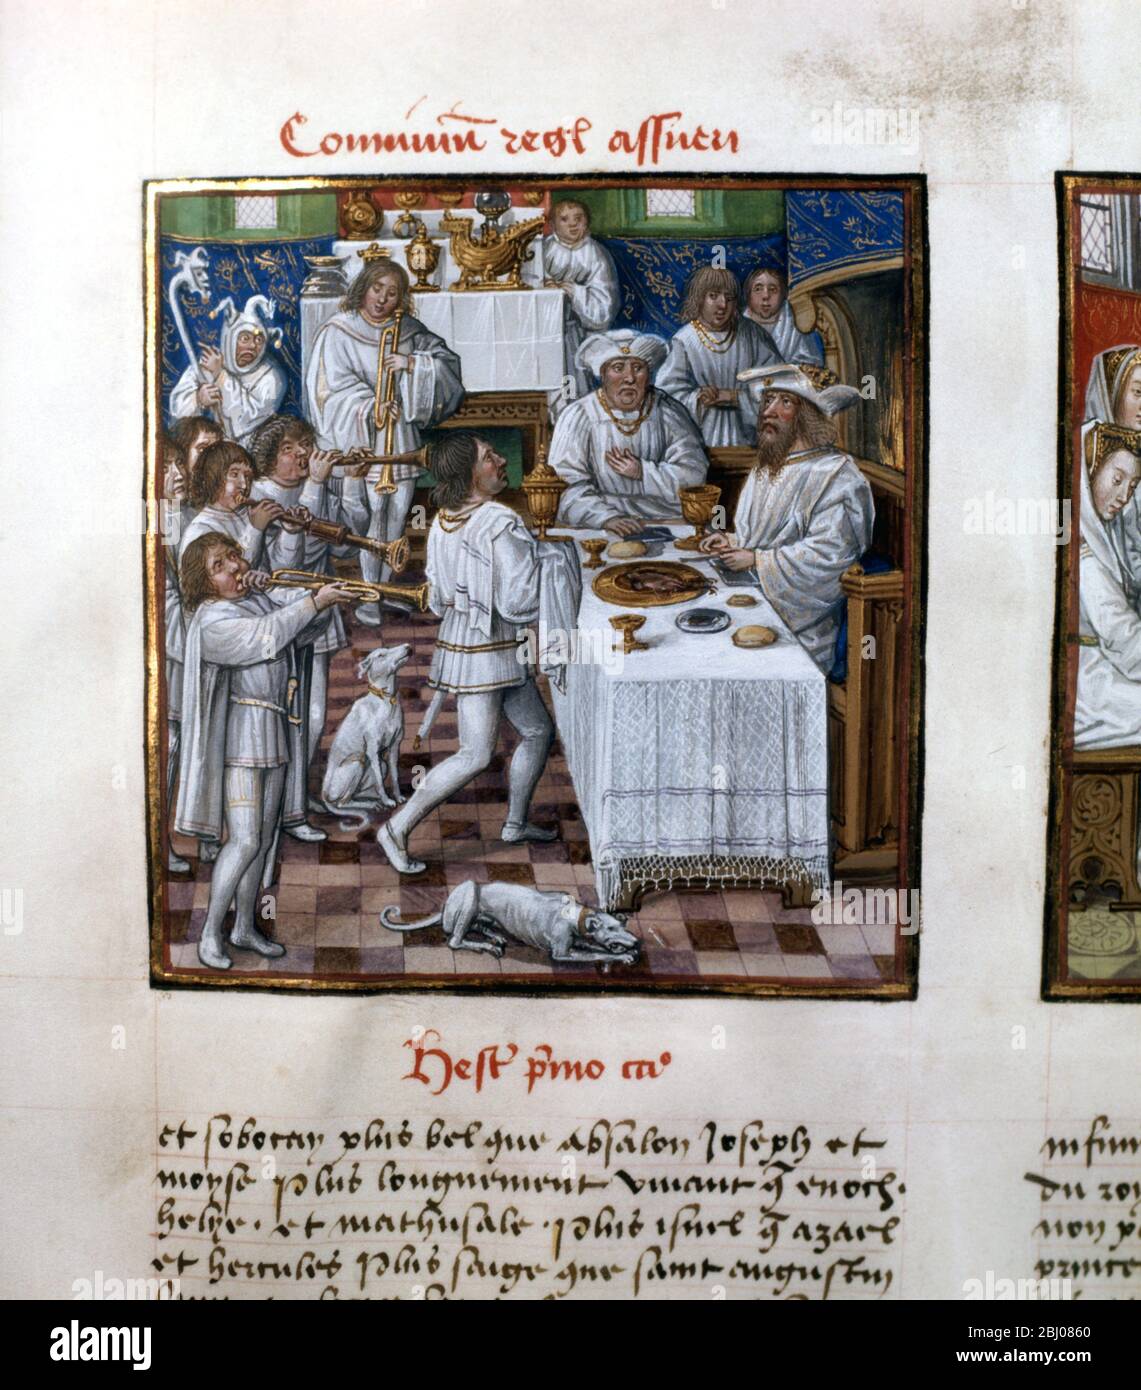 Conuiuiū regl assueri
Hest' pͥmo caͦ
et sobocay plus bel que absalon Joseph et
moyse Plus longuement viuant q̄ enoch.
helye. et mathusale. plus isnel q̄ azael
et hercules Plus saige que saint augustin
infini
du roy
non p
prince
alamy
Image ID: 2BJ0860
www.alamy.com